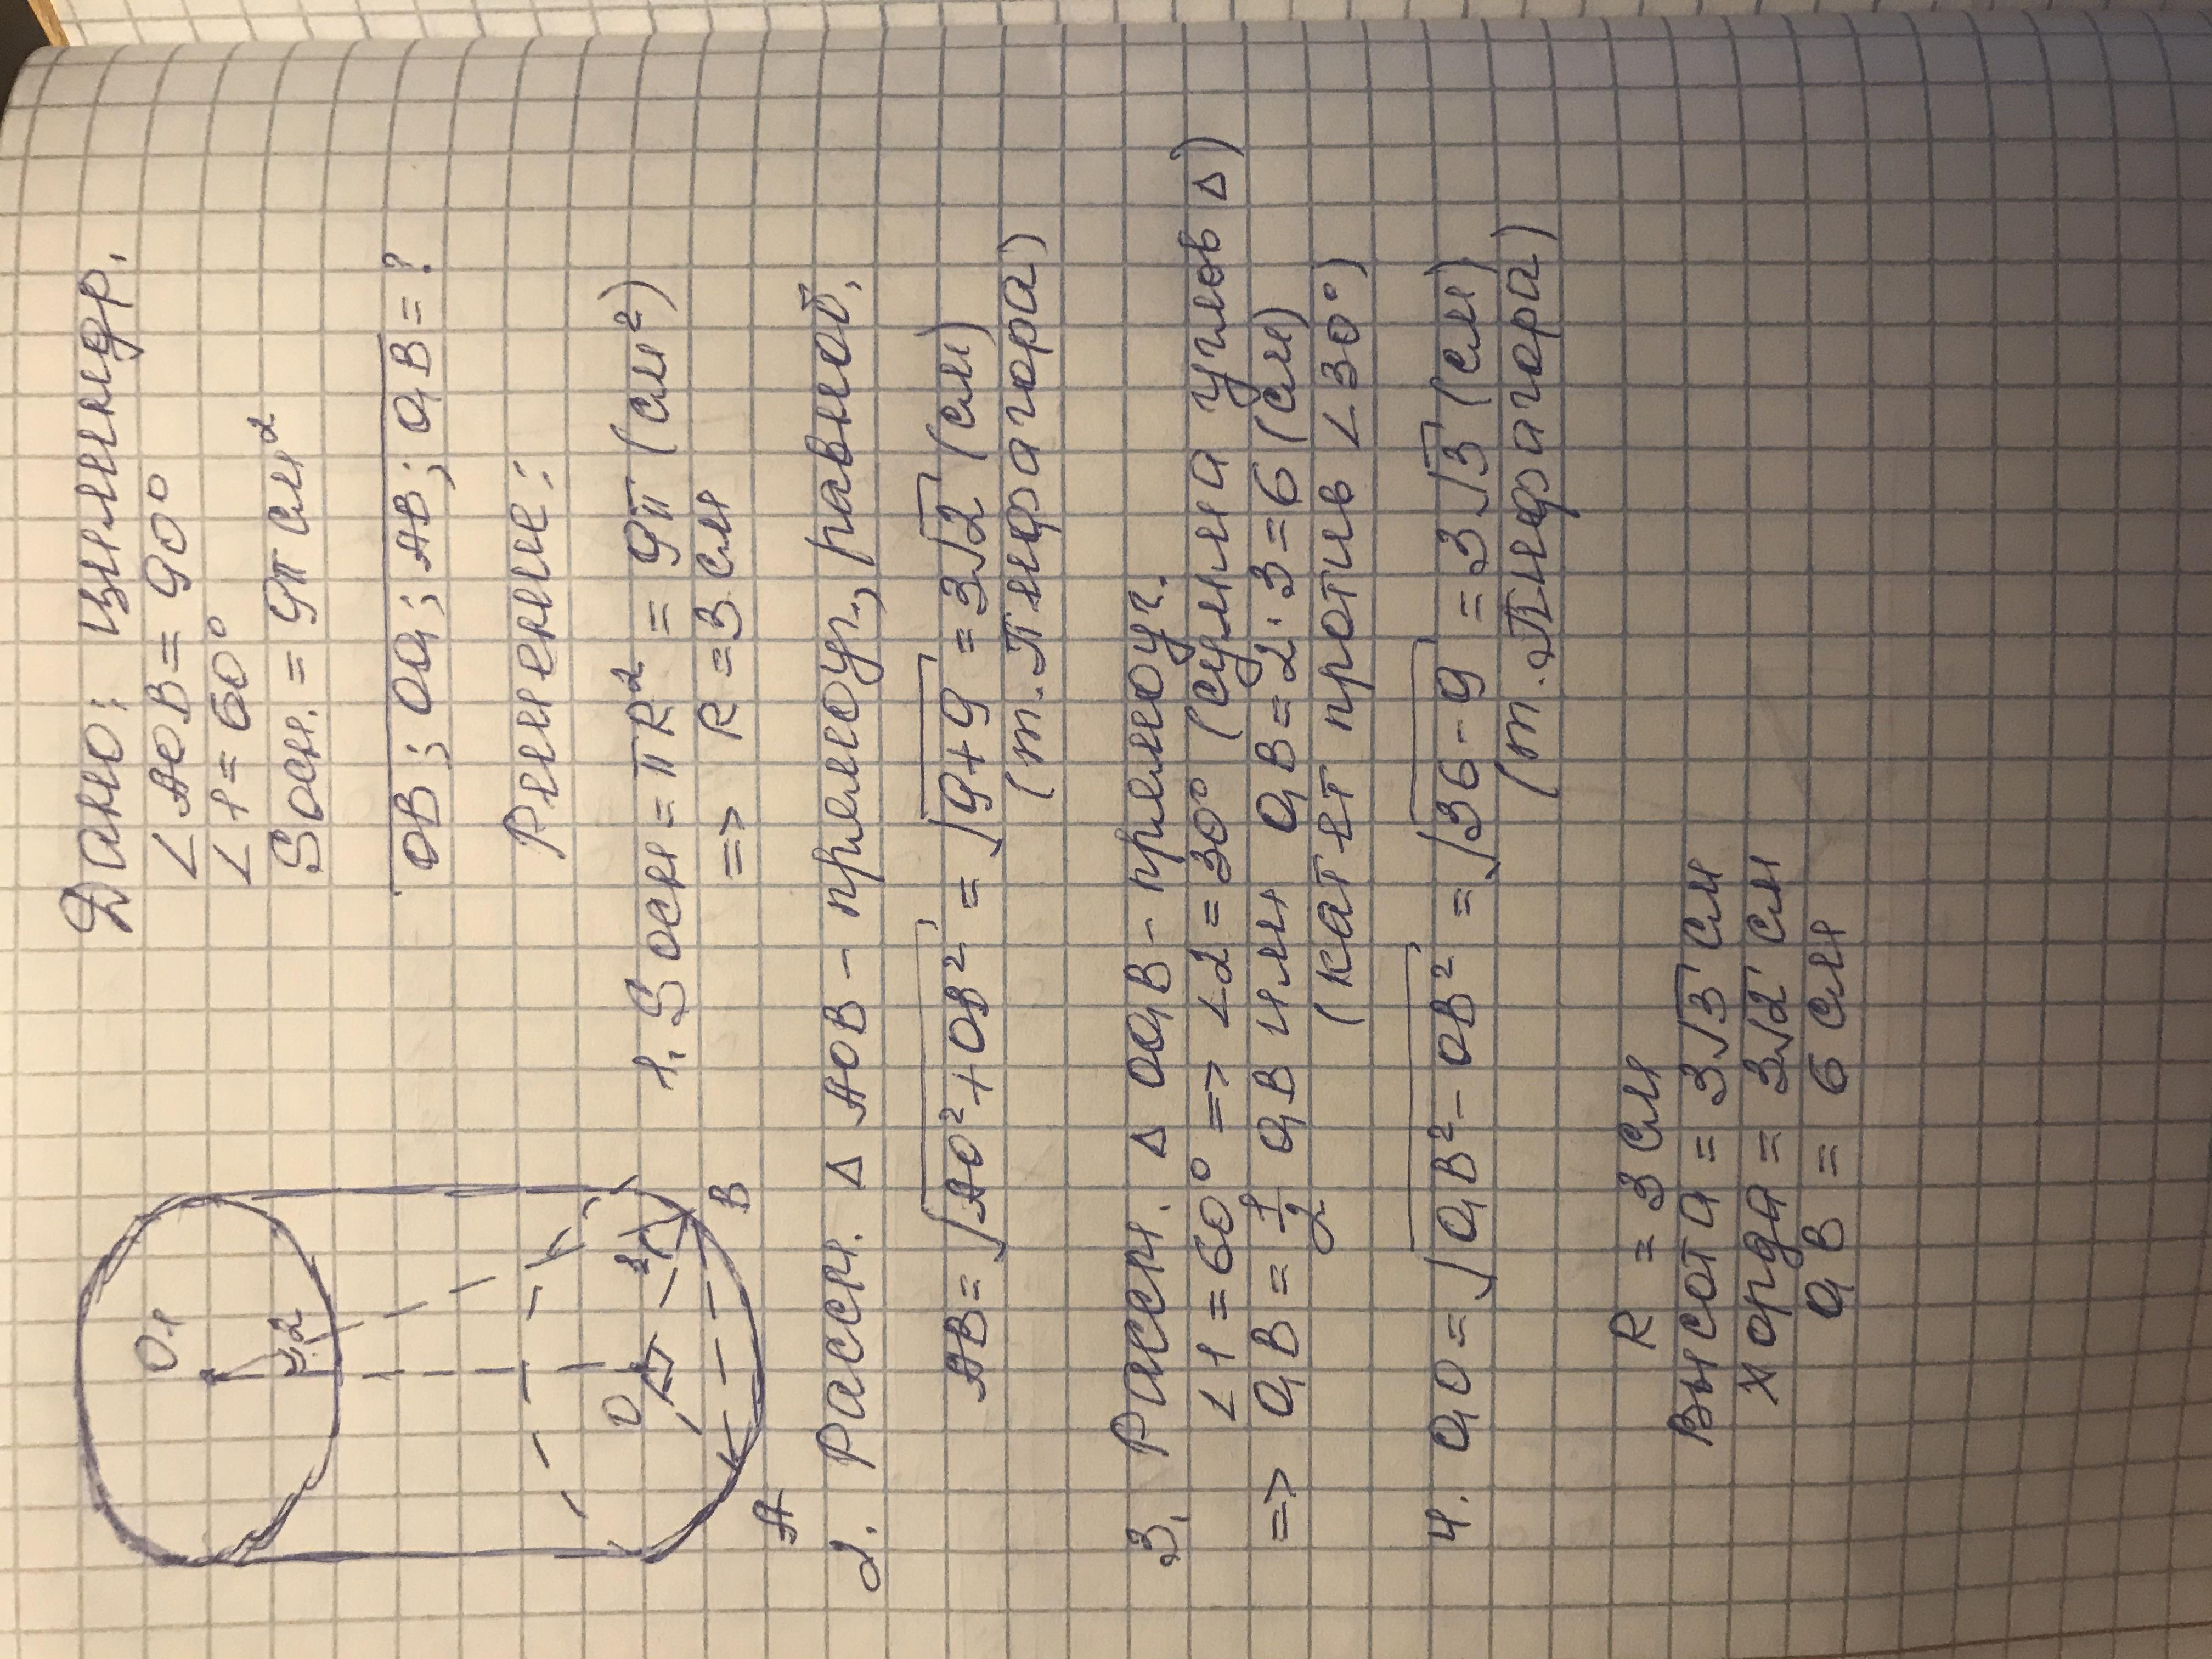 Дано: цилиндр.
∠AOB = 90°
∠1 = 60°
Sосн. = 9π см²
OB; OO₁; AB; O₁B = ?
Решение:
O₁
∠2
O
1
A
B
1. Sосн = πR² = 9π (см²)
=> R = 3 см
2. Рассм. Δ AOB – прямоуг., равноб.
AB = √AO² + OB² = √9+9 = 3√2 (см)
(т. Пифагора)
3. Рассм. Δ OO₁B – прямоуг.
∠1 = 60° => ∠2 = 30° (сумма углов Δ)
=> O₁B = 1/2 O₁B или O₁B = 2·3 = 6 (см)
(катет против ∠30°)
4. O₁O = √O₁B² – OB² = √36–9 = 3√3 (см)
(т. Пифагора)
R = 3 см
Высота = 3√3 см
Хорда = 3√2 см
O₁B = 6 см